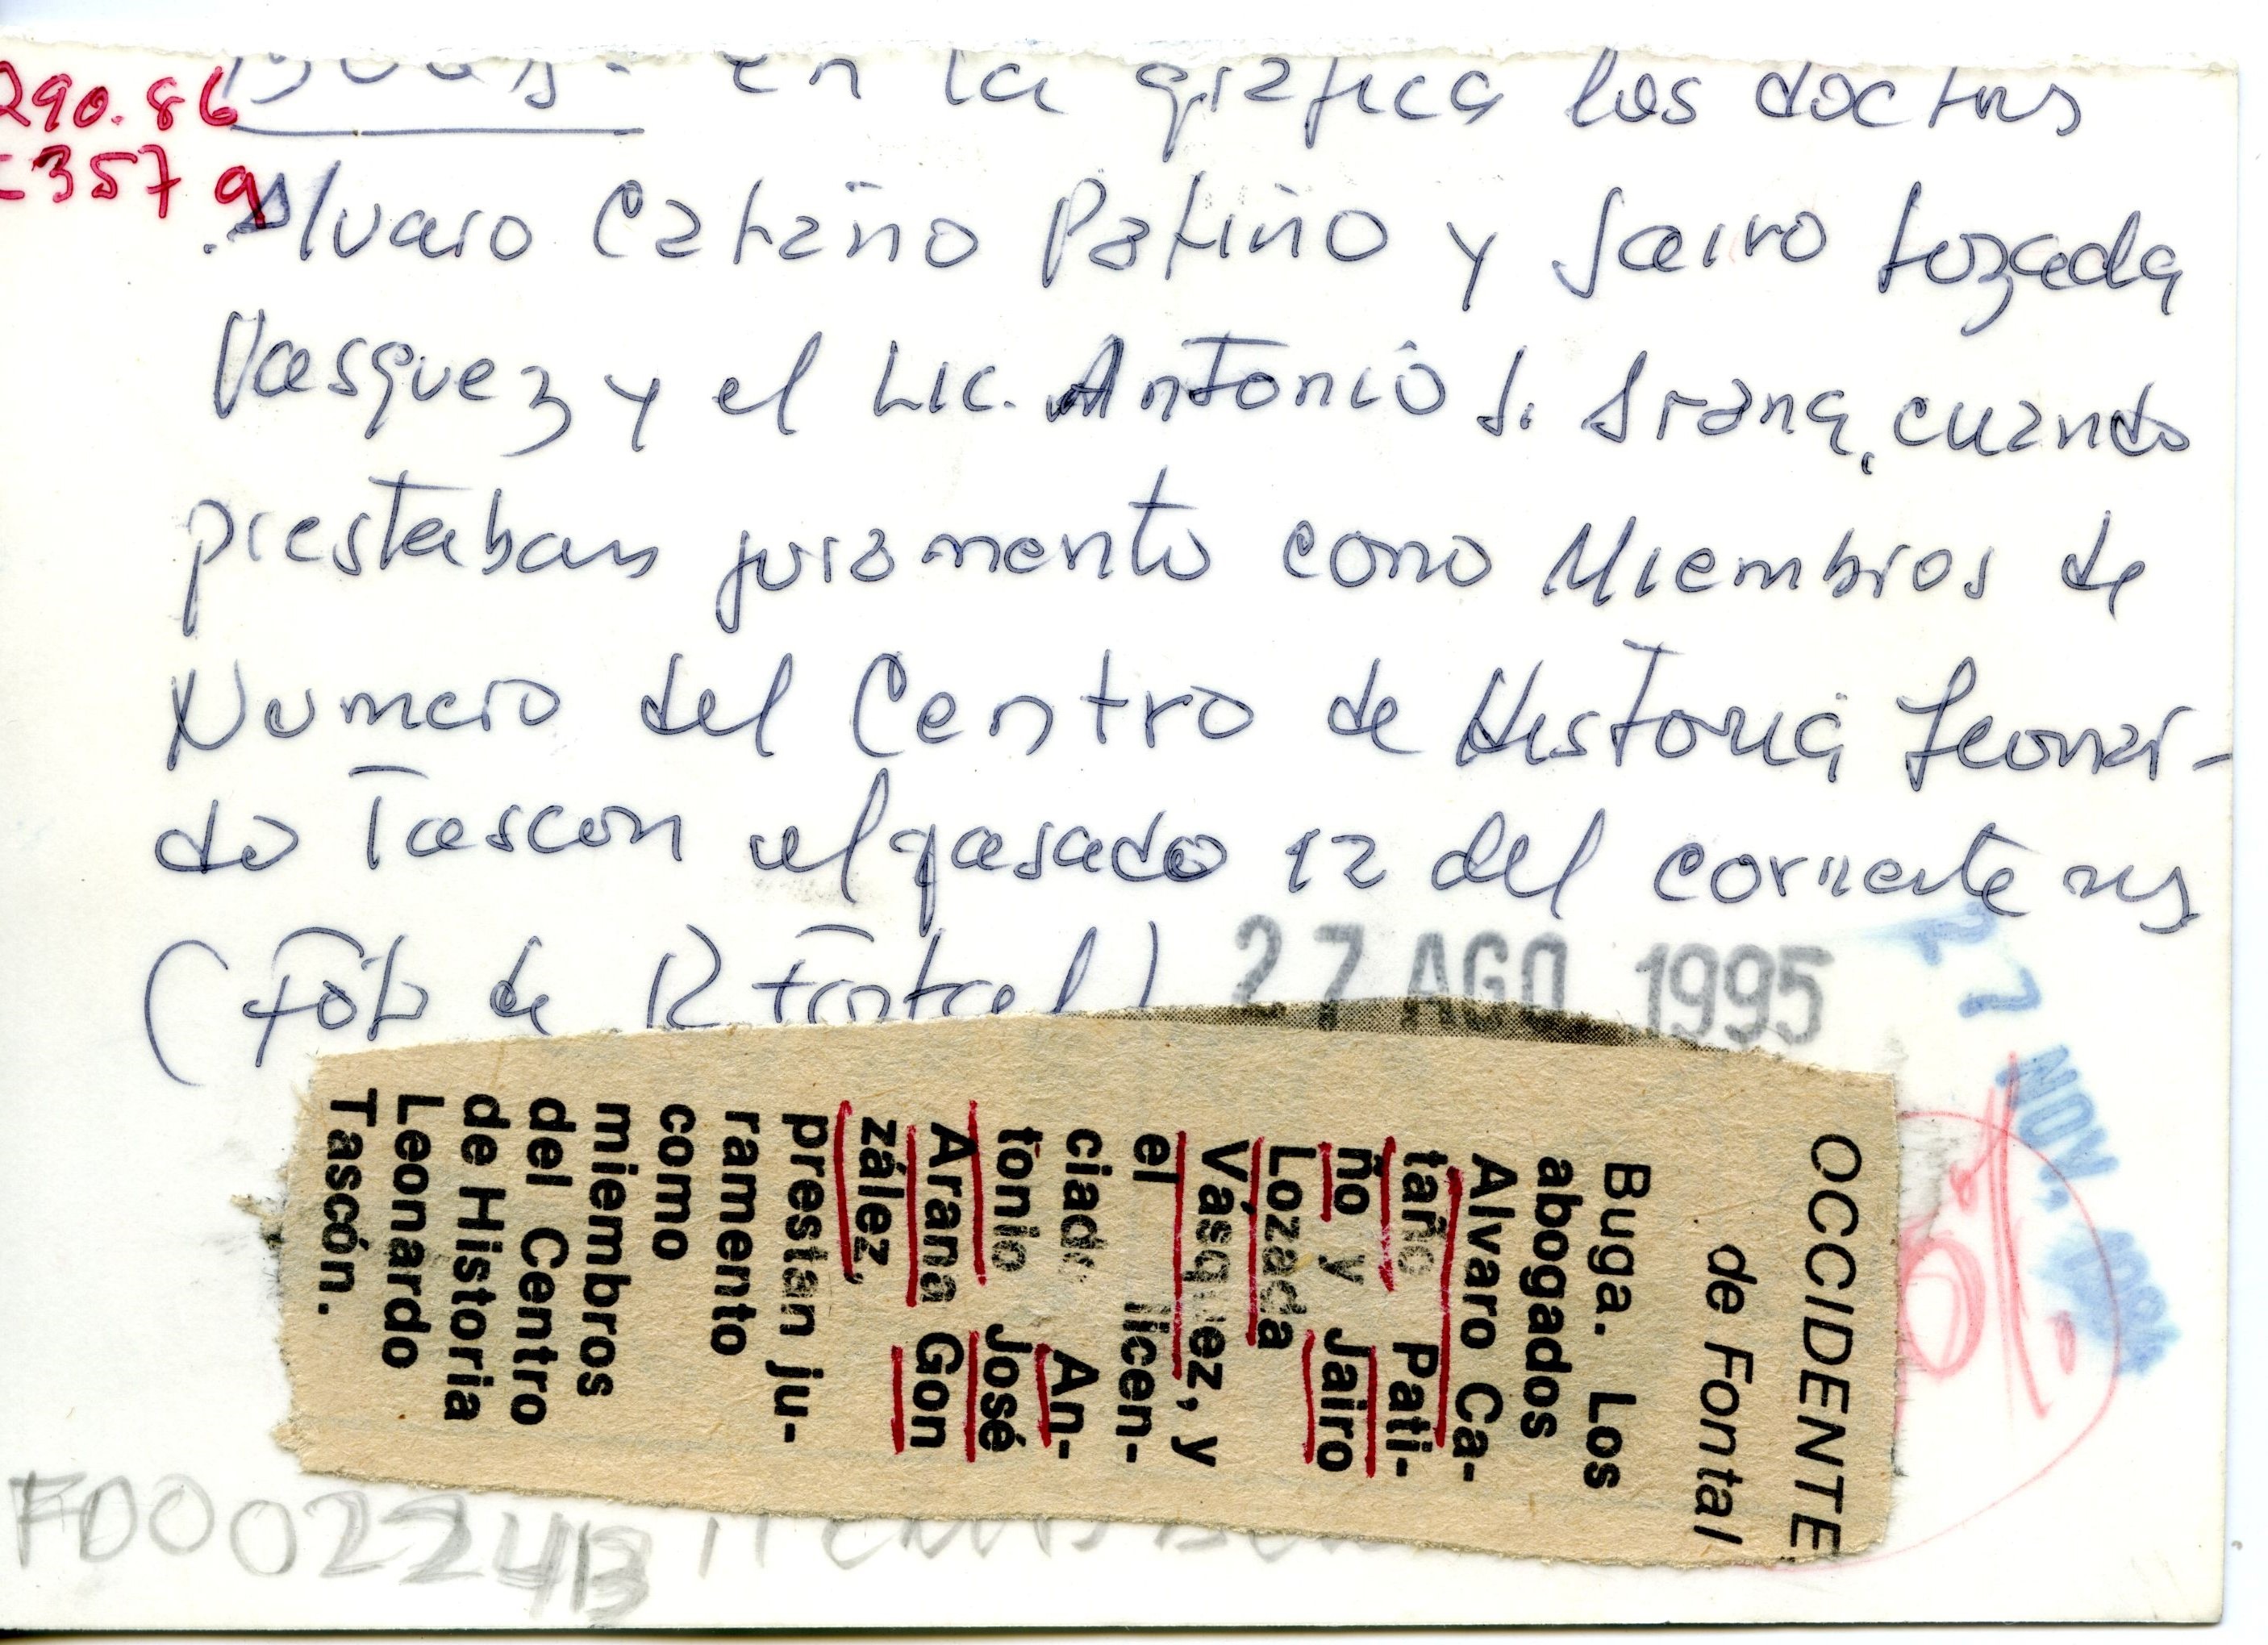 290.86
C357 g
BUGA.- en la gráfica los doctores
Alvaro Cataño Patiño y Jairo Lozada
Vasquez y el Lic. Antonio J. Arana, cuando
prestaban juramento como Miembros de
Numero del Centro de Historia Leonar-
do Tascon el pasado 12 del corriente mes
(Foto de R
27 AGO 1995
27 NOV.
OCCIDENTE
de Fontal
Buga. Los
abogados
Alvaro Ca-
taño Pati-
ño y Jairo
Lozada
Vásquez, y
el licen-
ciado An-
tonio José
Arana Gon
zález,
prestan ju-
ramento
como
miembros
del Centro
de Historia
Leonardo
Tascón.
FD002243